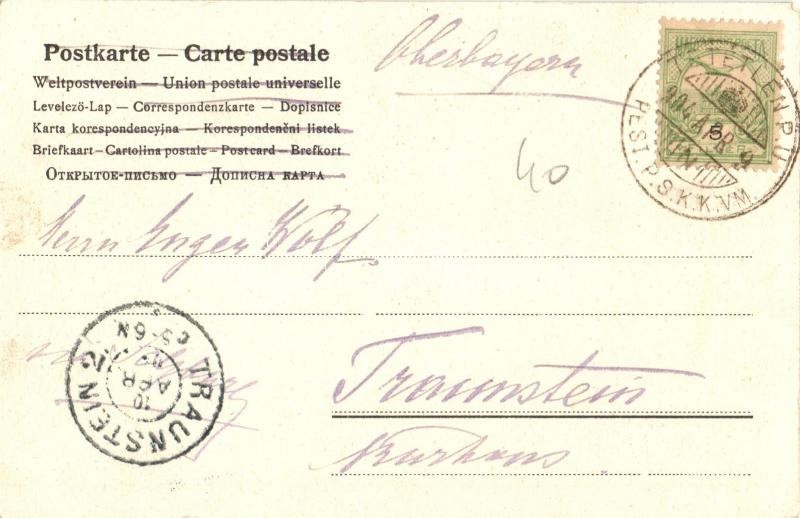 Postkarte — Carte postale
Weltpostverein — Union postale universelle
Levelező-Lap — Correspondenzkarte — Dopisnice
Karta korespondencyjna — Korespondenční listek
Briefkaart — Cartolina postale — Postcard — Brefkort
Открытое-письмо — Дописна карта
Oberbayern
5
PEST.P.S.K.K.VM.
40
Herrn Eugen Wolf.
TRAUNSTEIN 2
10 APR.
5-6N.
Traunstein
Kurhaus